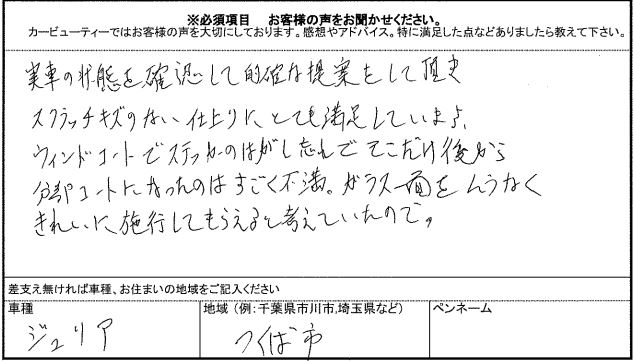 ※必須項目 お客様の声をお聞かせください。
カービューティーではお客様の声を大切にしております。感想やアドバイス。特に満足した点などありましたら教えて下さい。
実車の状態を確認して的確な提案をして頂き
スクラッチキズのない仕上りに、とても満足しています。
ウィンドコートでステッカーのはがし忘れで そこだけ後から
部分コートになったのはすごく不満。ガラス一面をムラなく
きれいに施行してもらえると考えていたので。
差支え無ければ車種、お住まいの地域をご記入ください
車種
地域（例：千葉県市川市,埼玉県など）
ペンネーム
ジュリア
つくば市